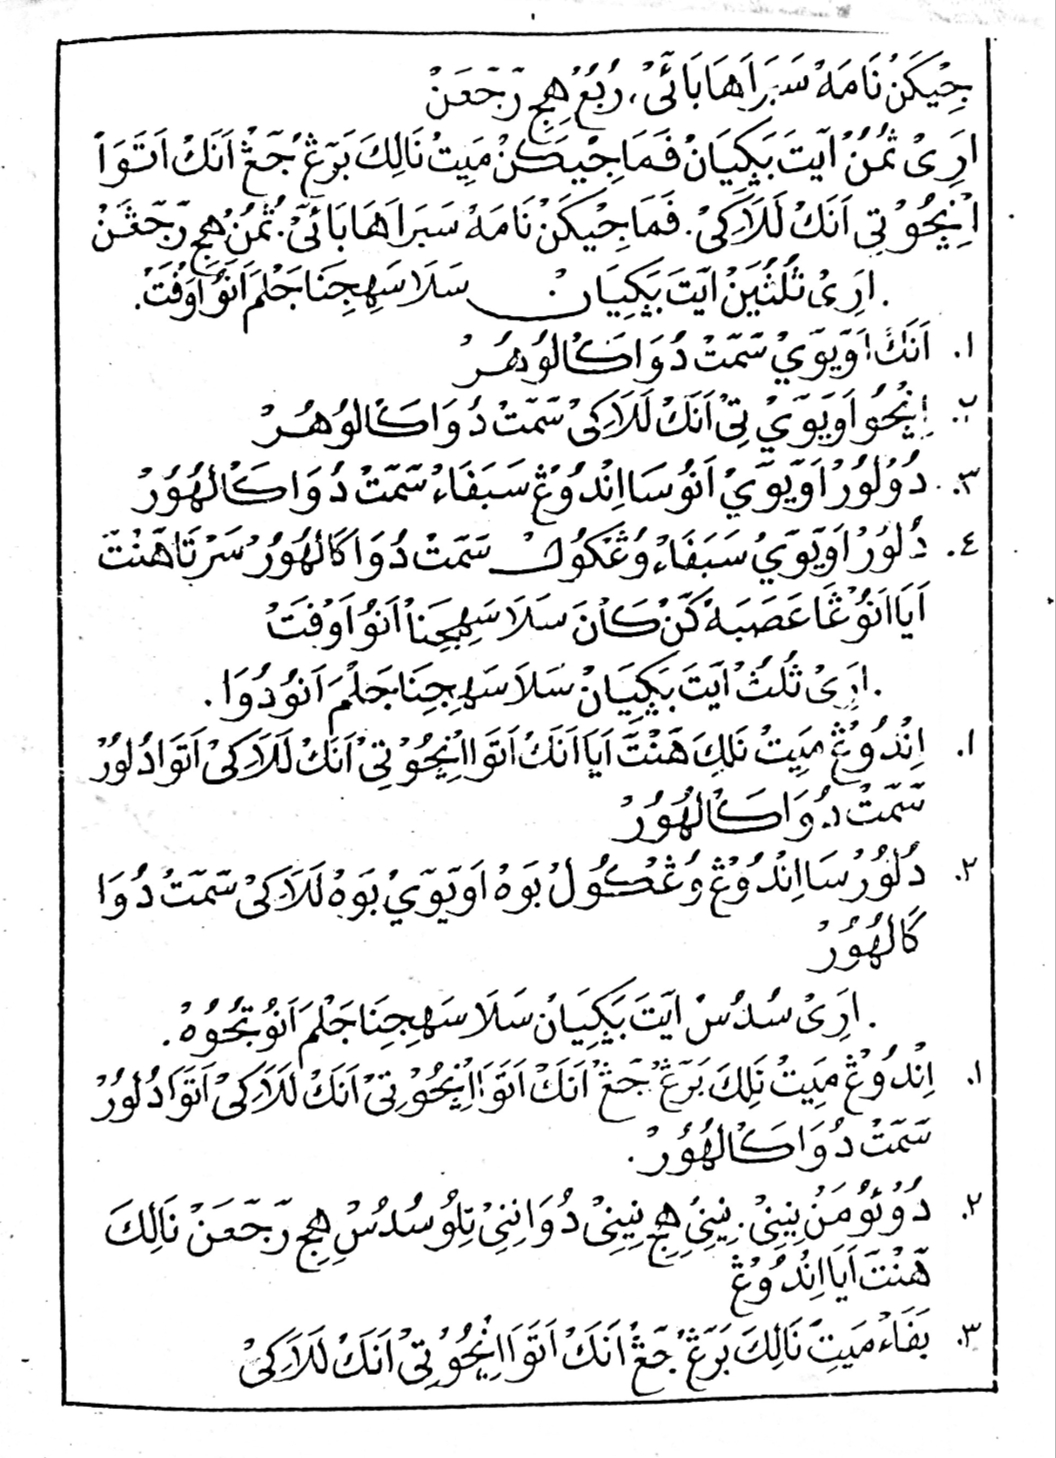 جِيْكَنْ نَامَهْ سَبَرَاهَا بَائَىْ، رُبُعْ هِجِ رَجَعَنْ
ارَىْ ثُمُنْ ايَتَ بَݢِيَانْ فَمَاجِيْكَنْ مَيِتْ نَالِكَ بَرَڠْ جَڠْ اَنَكْ اَتَوَا
اِنْچُوْ تِى اَنَكْ لَلَاكِىْ. فَمَاجِيْكَنْ نَامَهْ سَبَرَاهَا بَائَىْ. ثُمُنْ هِجِ رَجَعَنْ
. ارَىْ ثُلُثَيْنْ ايَتَ بَݢِيَانْ سَلَاسَهِجِنَا جَلْمَ اَنُوْ اوْفَتْ.
١. اَنَكْ اَوَيْوَيْ سَمَتْ دُوَا كَالُوْهُرْ
٢. اِنْچُوْ اَوَيْوَيْ تِىْ اَنَكْ لَلَاكِىْ سَمَتْ دُوَا كَالُوْهُرْ
٣. دُوْلُوْرْ اَوَيْوَيْ اَنُوْ سَااِنْدُوْڠْ سَبَفَاءْ سَمَتْ دُوَا كَالُهُوْرْ
٤. دُلُوْرْ اَوَيْوَيْ سَبَفَاءْ وُڠْكُوْلْ سَمَتْ دُوَا كَالُهُوْرْ سَرْتَا هَنْتَ
اَيَا اَنُوْ ڠَاعَصَبَهْ كَنْ كَانَ سَلَاسَهِجِنَا اَنُوْ اَوْفَتْ
. ارَىْ ثُلُثْ ايَتَ بَݢِيَانْ سَلَاسَهِجِنَا جَلْمَ اَنُوْ دُوَا.
١. اِنْدُوْڠْ مَيِتْ نَلِكَ هَنْتَ اَيَا اَنَكْ اَتَوَا اِنْچُوْ تِىْ اَنَكْ لَلَاكِىْ اَتَوَا دُلُوْرْ
سَمَتْ دُوَا كَالُهُوْرْ
٢. دُلُوْرْ سَااِنْدُوْڠْ وُڠْكُوْلْ بَوَهْ اَوَيْوَيْ بَوَهْ لَلَاكِىْ سَمَتْ دُوَا
كَالُهُوْرْ
. ارَىْ سُدُسْ ايَتَ بَݢِيَانْ سَلَاسَهِجِنَا جَلْمَ اَنُوْ تُجُوْهْ.
١. اِنْدُوْڠْ مَيِتْ نَلِكَ بَرَڠْ جَڠْ اَنَكْ اَتَوَا اِنْچُوْ تِىْ اَنَكْ لَلَاكِىْ اَتَوَا دُلُوْرْ
سَمَتْ دُوَا كَالُهُوْرْ.
٢. دُوْنُوْمَنْ نِيْنِىْ. نِيْنِىْ هِجِ نِيْنِىْ دُوَا نِنِىْ تِلُوْ سُدُسْ هِجِ رَجَعَنْ نَالِكَ
هَنْتَ اَيَا اِنْدُوْڠْ
٣. بَفَاءْ مَيِتْ نَالِكَ بَرَڠْ جَڠْ اَنَكْ اَتَوَا اِنْچُوْ تِىْ اَنَكْ لَلَاكِىْ